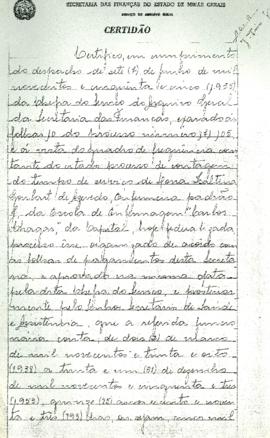 SECRETARIA DAS FINANÇAS DO ESTADO DE MINAS GERAIS
SERVIÇO DO ARQUIVO GERAL
CERTIDÃO
Certifico, em cumprimento
do despacho de sete (7) de junho de mil
novecentos e cinquenta e cinco (1.955)
da Chefia do Serviço do Arquivo Geral
da Secretaria das Finanças, exarado às
folhas 10 do processo número
e à vista do quadro de frequência cons-
tante do citado processo de contagem
do tempo de serviço de Dona
Goulart de Azevedo, Enfermeira padrão
da Escola de Enfermagem "Carlos
Chagas", da Capital, hoje federalizada,
processo esse, organizado de acordo com
as folhas de pagamentos desta Secreta
ria, e aprovado na mesma data
pela dita Chefia do Serviço, e posterior
mente pelo Senhor Secretário de Saúde
e Assistência, que a referida funcio
nária conta, de dois (2) de março
de mil novecentos e trinta e oito
(1938) a trinta e um (31) de dezembro
de mil novecentos e cinquenta e três
(1953), quinze (15) anos e cento e noven
ta e três (193) dias, ou sejam cinco mil